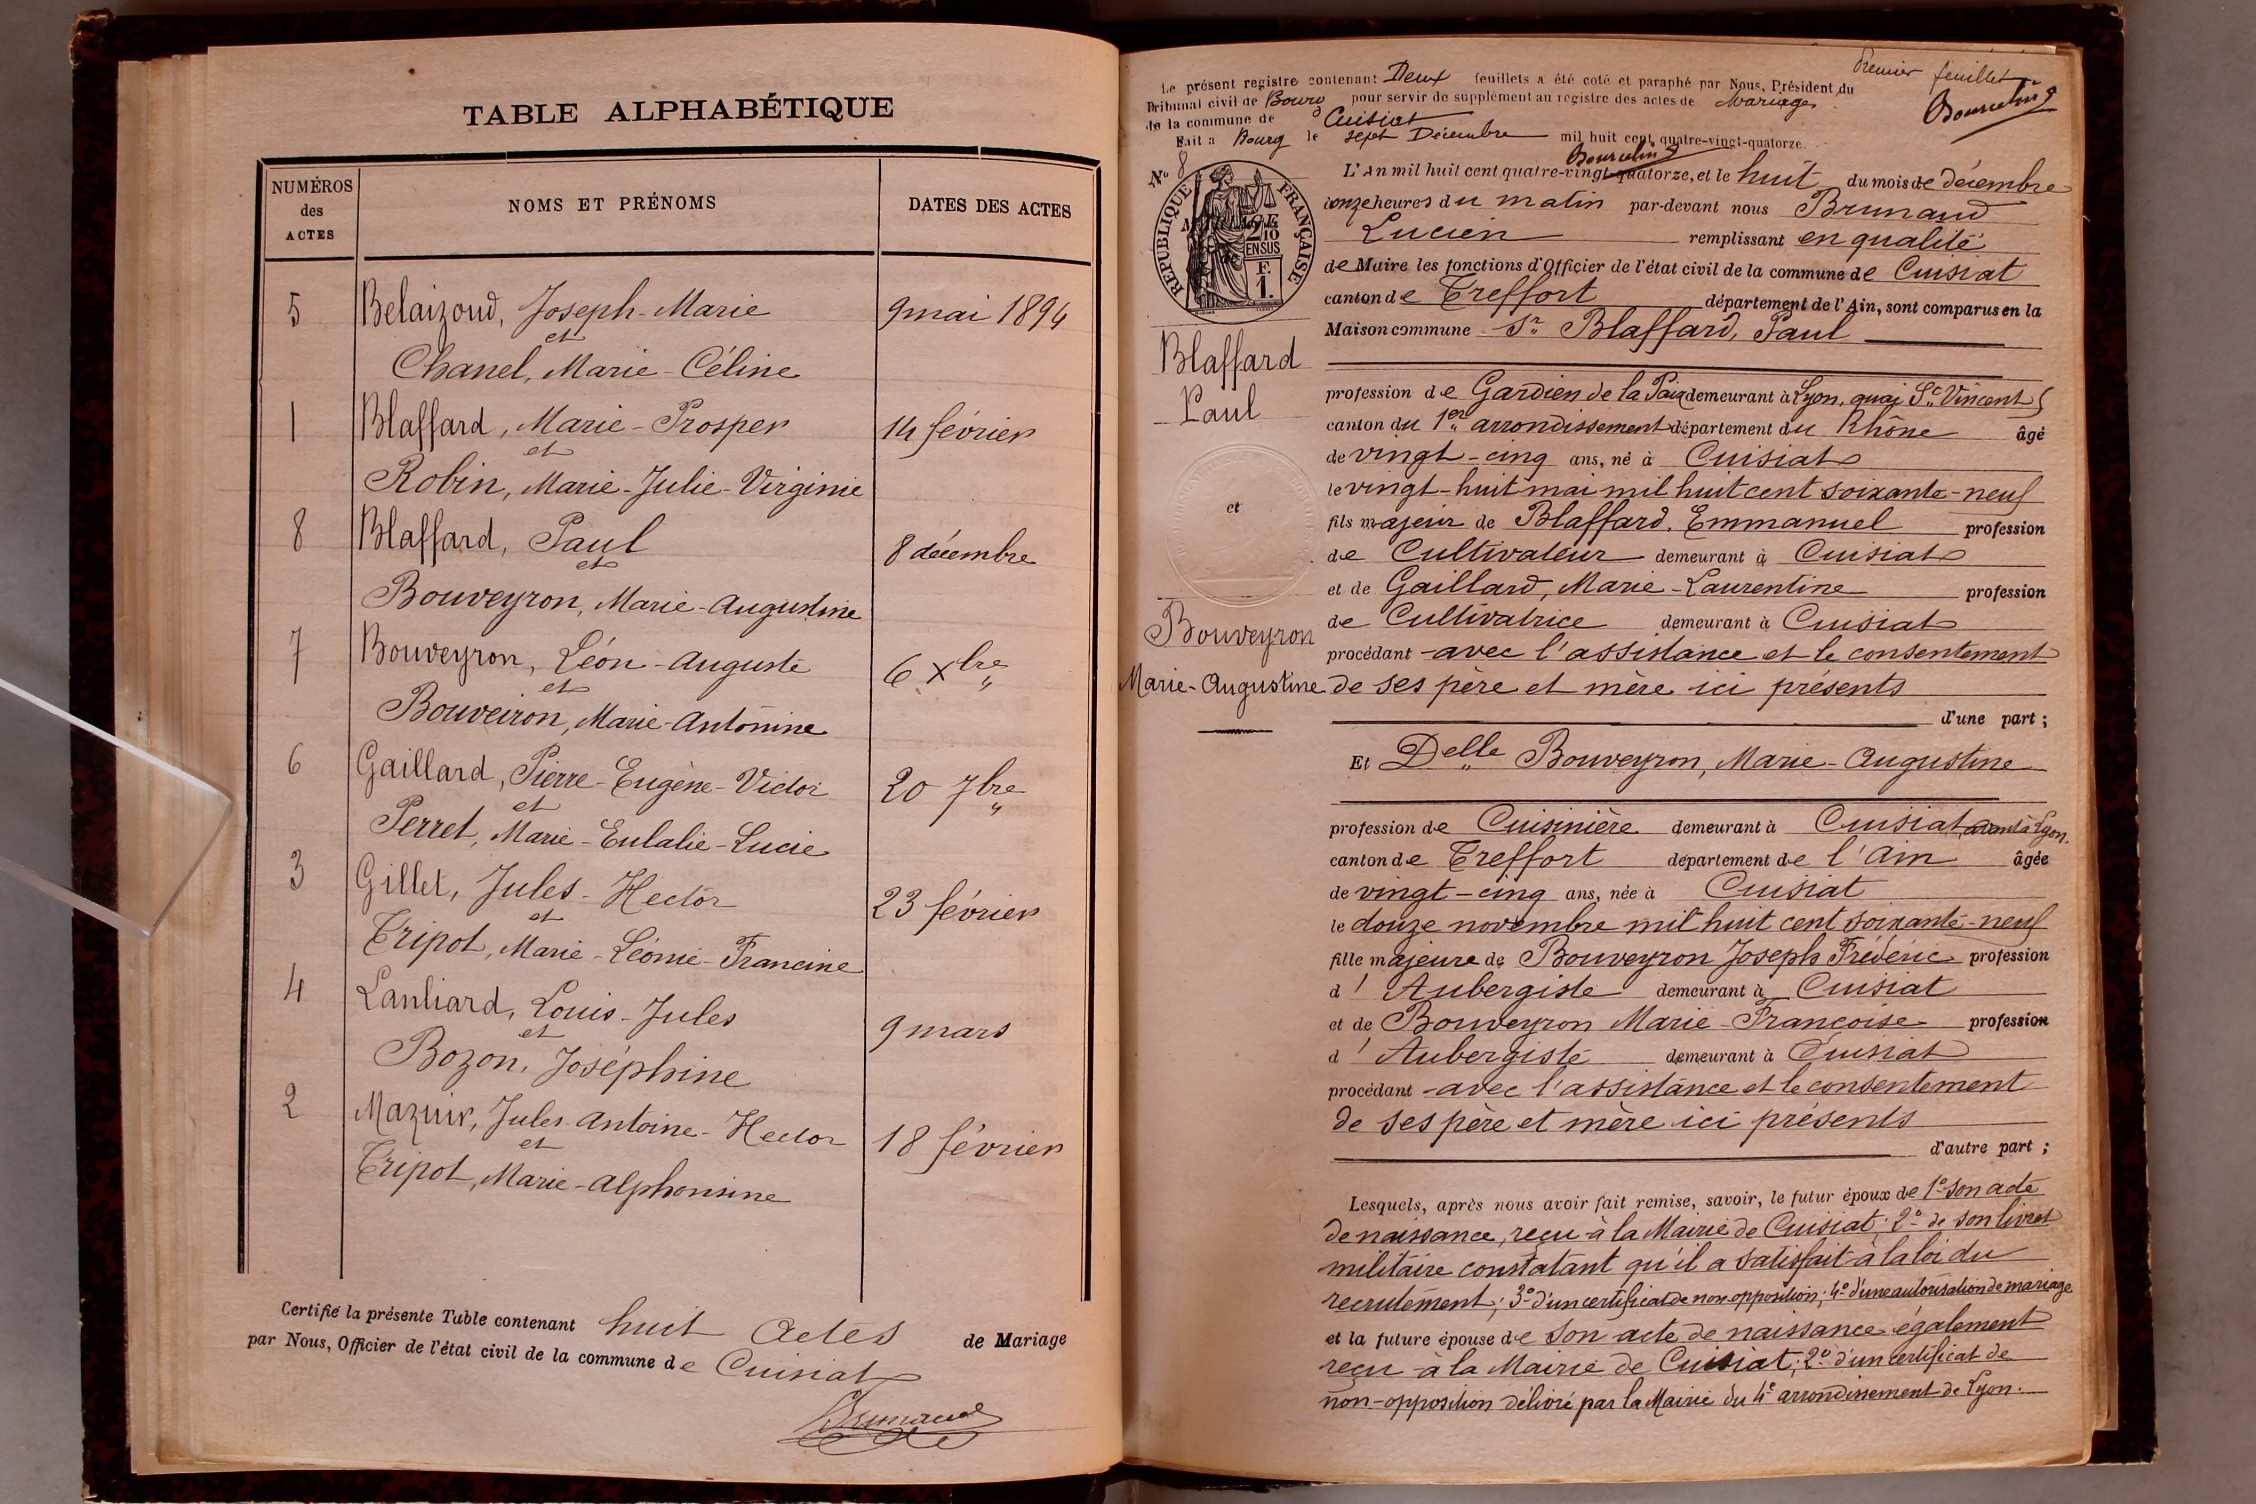 TABLE ALPHABÉTIQUE
NUMÉROS des ACTES
NOMS ET PRÉNOMS
DATES DES ACTES
5 Belaizoud, Joseph-Marie 9 mai 1894
et
Chanel, Marie-Céline
1 Blaffard, Marie-Prosper 14 février
et
Robin, Marie-Julie-Virginie
8 Blaffard, Paul 8 décembre
et
Bouveyron, Marie-Augustine
7 Bouveyron, Léon-Auguste 6 Xbre
et
Bouveiron, Marie-Antonine
6 Gaillard, Pierre-Eugène-Victor 20 7bre
et
Perret, Marie-Eulalie-Lucie
3 Gillet, Jules-Hector 23 février
et
Tripot, Marie-Léonie-Francine
4 Lanliard, Louis-Jules 9 mars
et
Bozon, Joséphine
2 Mazuir, Jules-Antoine-Hector 18 février
et
Tripot, Marie-Alphonsine
Certifié la présente Table contenant huit Actes de Mariage
par Nous, Officier de l'état civil de la commune de Cuisiat
Brunaud
Premier feuillet
Le présent registre contenant Deux feuillets a été coté et paraphé par Nous, Président du
Tribunal civil de Bourg pour servir de supplément au registre des actes de Mariages
de la commune de Cuisiat
Fait à Bourg le sept Décembre mil huit cent quatre-vingt-quatorze.
No 8
RÉPUBLIQUE FRANÇAISE
2/10 EN SUS
F. 1.
L'An mil huit cent quatre-vingt-quatorze, et le huit du mois de décembre
onze heures du matin par-devant nous Brunaud
Lucien remplissant en qualité
de Maire les fonctions d'Officier de l'état civil de la commune de Cuisiat
canton de Treffort département de l'Ain, sont comparus en la
Maison commune Sr Blaffard, Paul
Blaffard
Paul
et
Bouveyron
Marie-Augustine
profession de Gardien de la Paix demeurant à Lyon, quai St Vincent 5
canton du 1er arrondissement département du Rhône âgé
de vingt-cinq ans, né à Cuisiat
le vingt-huit mai mil huit cent soixante-neuf
fils majeur de Blaffard, Emmanuel profession
de Cultivateur demeurant à Cuisiat
et de Gaillard, Marie-Laurentine profession
de Cultivatrice demeurant à Cuisiat
procédant avec l'assistance et le consentement
de ses père et mère ici présents
d'une part ;
Et Delle Bouveyron, Marie-Augustine
profession de Cuisinière demeurant à Cuisiat, avant à Lyon.
canton de Treffort département de l'Ain âgée
de vingt-cinq ans, née à Cuisiat
le douze novembre mil huit cent soixante-neuf
fille majeure de Bouveyron Joseph Frédéric profession
d'Aubergiste demeurant à Cuisiat
et de Bouveyron Marie-Françoise profession
d'Aubergiste demeurant à Cuisiat
procédant avec l'assistance et le consentement
de ses père et mère ici présents
d'autre part ;
Lesquels, après nous avoir fait remise, savoir, le futur époux de 1o son acte
de naissance, reçu à la Mairie de Cuisiat; 2o de son livret
militaire constatant qu'il a satisfait à la loi du
recrutement; 3o d'un certificat de non opposition; 4o d'une autorisation de mariage
et la future épouse de son acte de naissance également
reçu à la Mairie de Cuisiat; 2o d'un certificat de
non-opposition délivré par la Mairie du 4e arrondissement de Lyon.